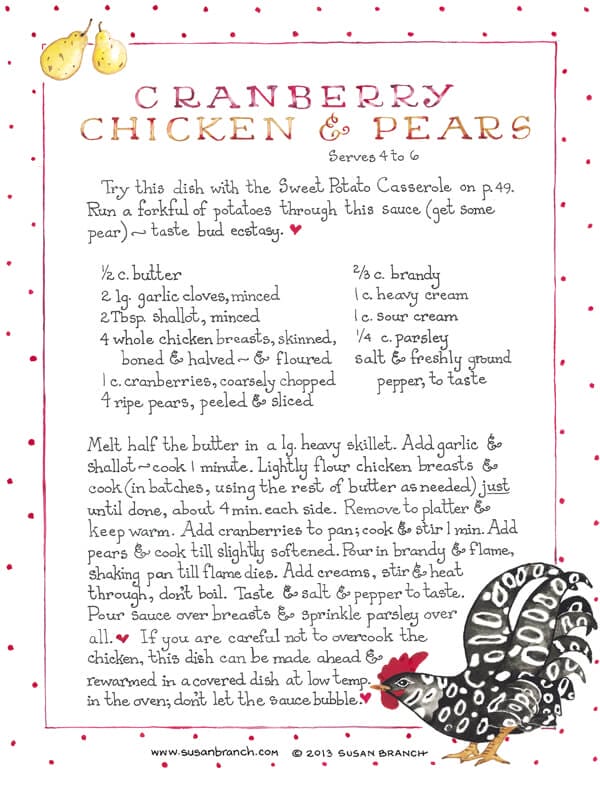 CRANBERRY
CHICKEN & PEARS
Serves 4 to 6
Try this dish with the Sweet Potato Casserole on p. 49.
Run a forkful of potatoes through this sauce (get some
pear) ~ taste bud ecstasy. ♥
½ c. butter
2 lg. garlic cloves, minced
2 Tbsp. shallot, minced
4 whole chicken breasts, skinned,
boned & halved ~ & floured
1 c. cranberries, coarsely chopped
4 ripe pears, peeled & sliced
⅔ c. brandy
1 c. heavy cream
1 c. sour cream
¼ c. parsley
salt & freshly ground
pepper, to taste
Melt half the butter in a lg. heavy skillet. Add garlic &
shallot ~ cook 1 minute. Lightly flour chicken breasts &
cook (in batches, using the rest of butter as needed) just
until done, about 4 min. each side. Remove to platter &
keep warm. Add cranberries to pan; cook & stir 1 min. Add
pears & cook till slightly softened. Pour in brandy & flame,
shaking pan till flame dies. Add creams, stir & heat
through, don't boil. Taste & salt & pepper to taste.
Pour sauce over breasts & sprinkle parsley over
all. ♥ If you are careful not to overcook the
chicken, this dish can be made ahead &
rewarmed in a covered dish at low temp.
in the oven; don't let the sauce bubble. ♥
www.susanbranch.com © 2013 SUSAN BRANCH